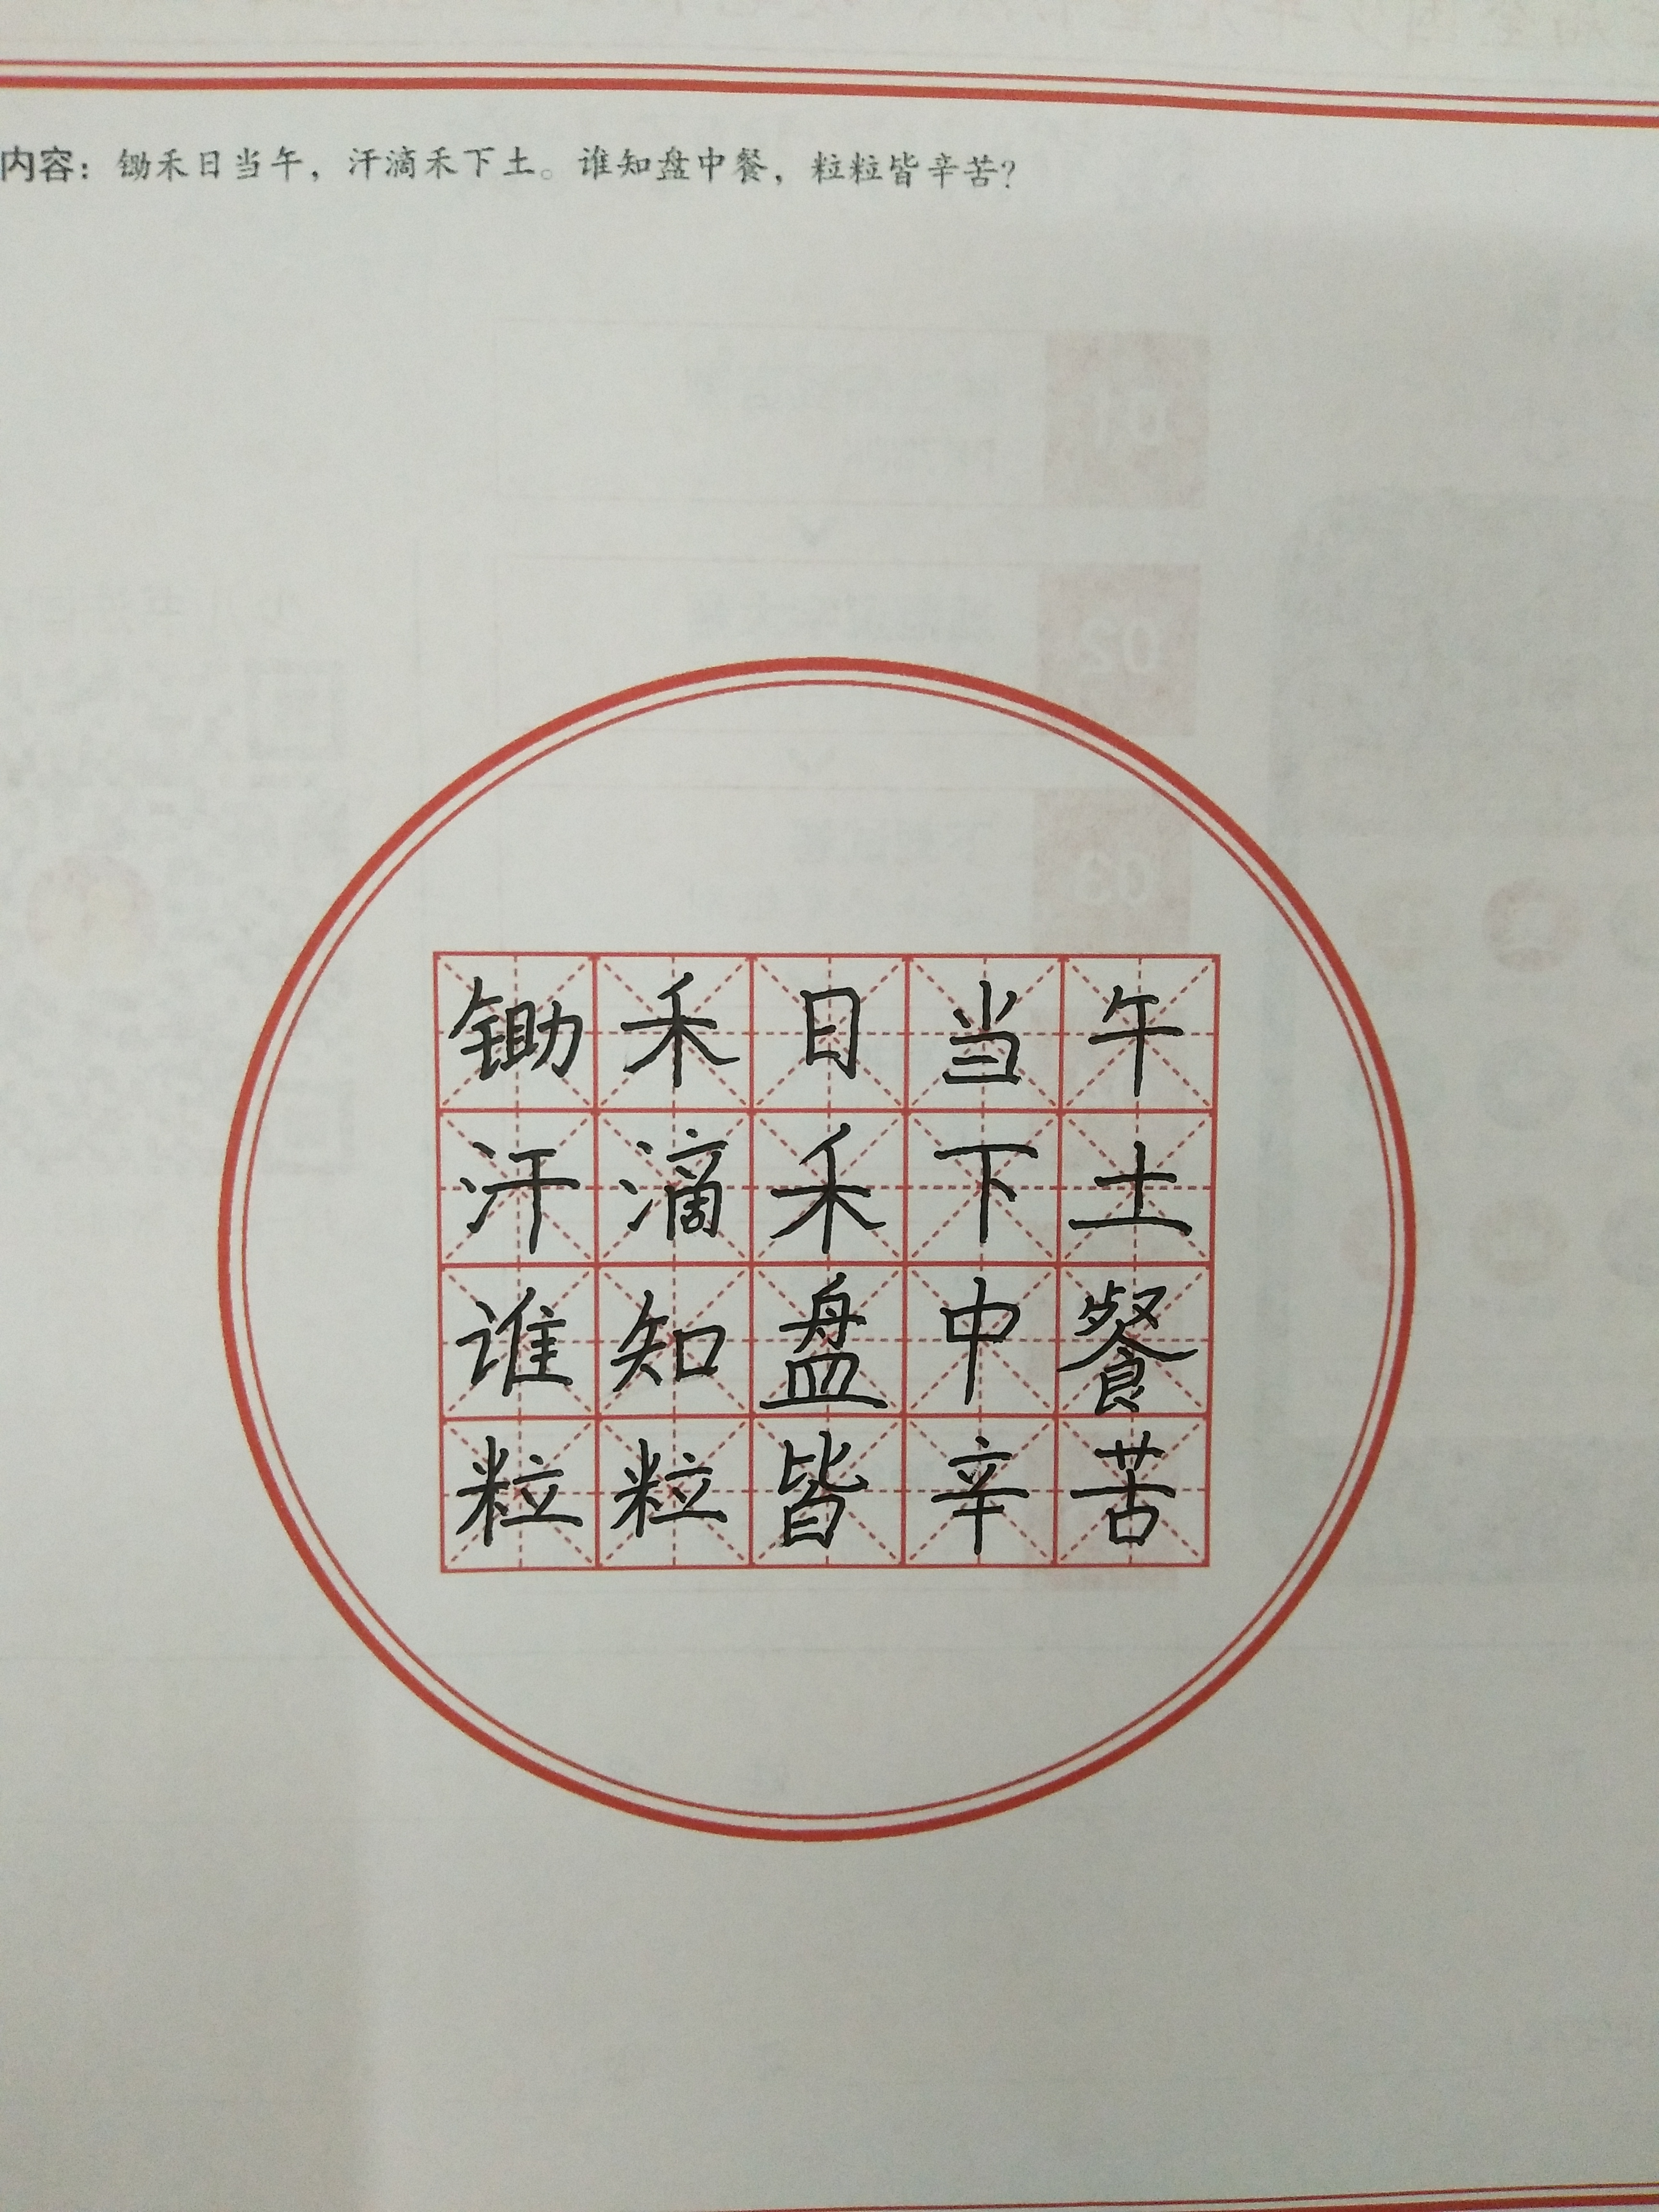 内容：锄禾日当午，汗滴禾下土。谁知盘中餐，粒粒皆辛苦？
锄禾日当午
汗滴禾下土
谁知盘中餐
粒粒皆辛苦